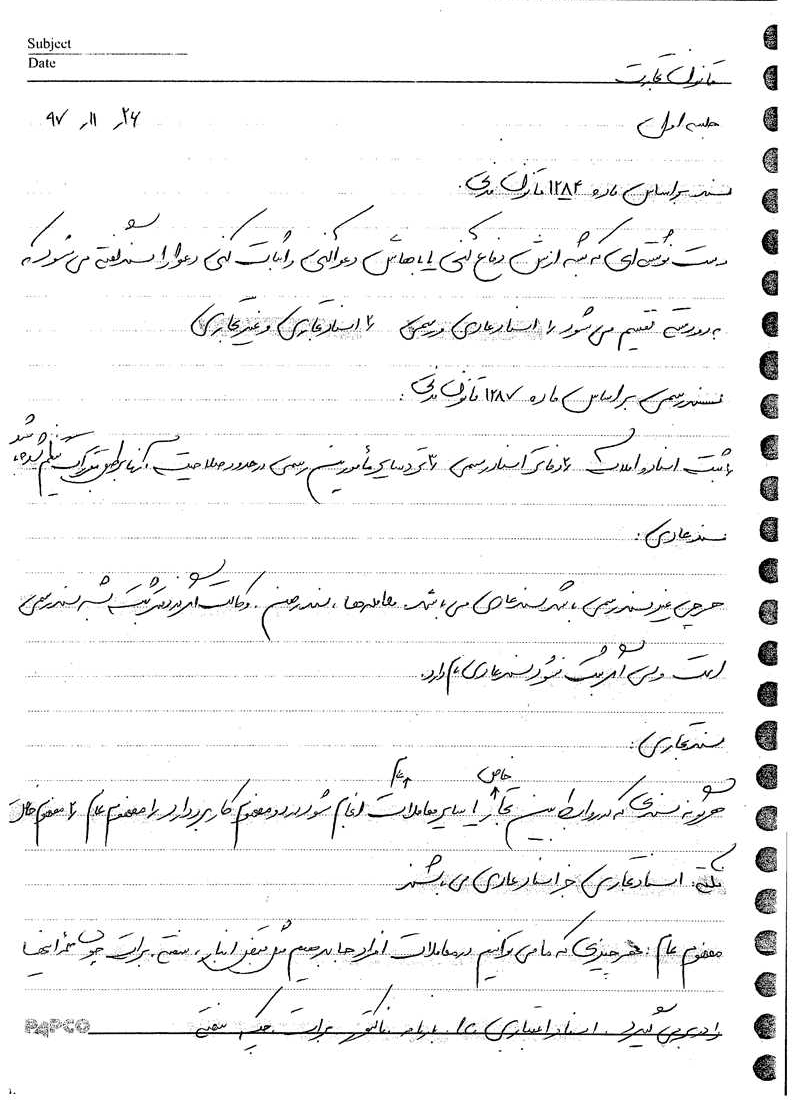 Subject
Date
قانون تجارت
جلسه اول ۹۷ ,۱۱ ,۲۶
سند براساس ماده ۱۲۸۴ قانون مدنی.
دست نوشته‌ای که بشه ازش دفاع کنی یا باهاش دعوا کنی و اثبات کنی دعوا را سند گفته می شود که
به دو دسته تقسیم می شود ۱, اسناد عادی و رسمی ۲, اسناد تجاری و غیر تجاری
سند رسمی بر اساس ماده ۱۲۸۷ قانون مدنی:
۱, ثبت اسناد و املاک ۲, دفاتر اسناد رسمی ۳, نزد سایر مأمورین رسمی در حدود صلاحیت آنها بر طبق مقررات تنظیم شده باشد
سند عادی:
هرچی غیر سند رسمی باشد سند عادی می باشد. معامله‌ها، سند رهن. وکالت اگر در دفتر ثبت بشه سند رسمی
است ولی اگر ثبت نشود سند عادی نام دارد.
سند تجاری:
خاص عام
هرگونه سندی که در روابط بین تجار یا سایر معاملات انجام شود در دو مفهوم کاربرد دارد ۱, مفهوم عام ۲, مفهوم خاص
نکته: اسناد تجاری جز اسناد عادی می باشند
مفهوم عام: هر چیزی که ما می توانیم در معاملات افراد جا بدهیم مثل قبض انبار، سفته، برات چون همه اینها
را در بر می گیرد. اسناد اعتباری بارنامه برات چک سفته
PAPCO